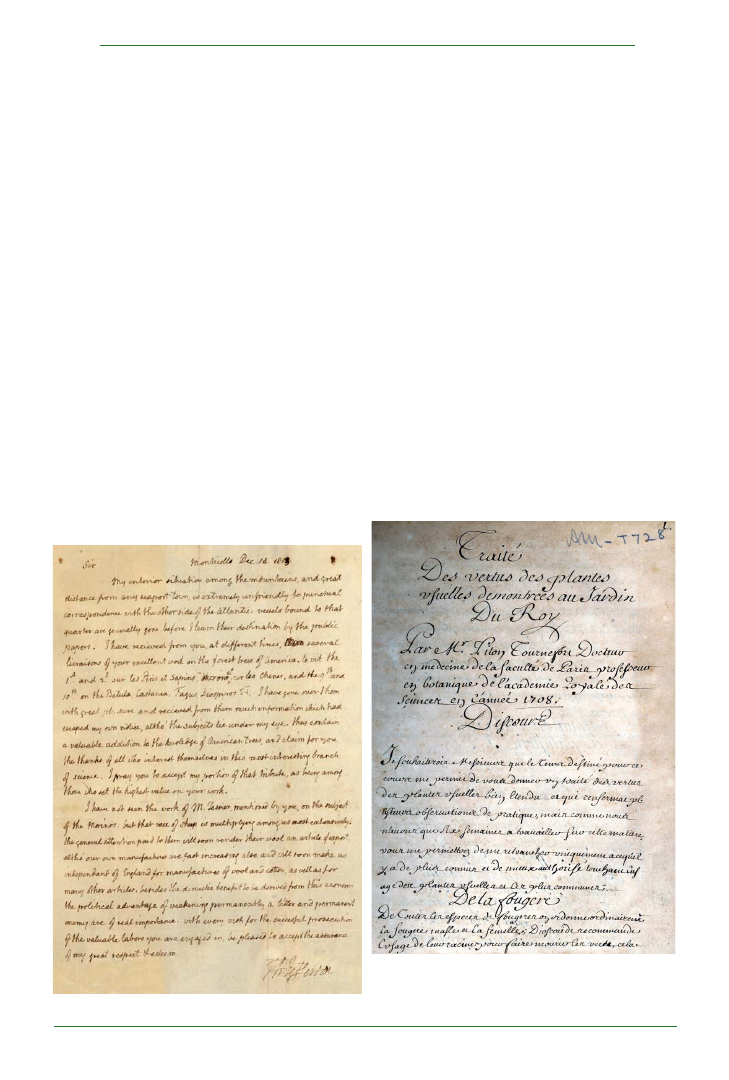 Sir
Monticello Dec. 16.
My interior situation among the mountains, and great
distance from any seaport town, is extremely unfriendly to punctual
correspondence with the other side of the Atlantic. vessels bound to that
quarter are generally gone before I learn their destination by the public
papers. I have recieved from you, at different times, several
livraisons of your excellent work on the forest trees of America, to wit the
1st and 2d sur les Pins et Sapins, sur les Chenes, and the 9th and
10th on the Betula, Castanea, Fagus, Diospyros I have gone over them
with great pleasure and recieved from them much information which had
escaped my own notice, altho' the subjects lie under my eye. they contain
a valuable addition to the knoledge of American trees, and claim for you
the thanks of all who interest themselves in this most interesting branch
of science. I pray you to accept my portion of that tribute, as being among
those who set the highest value on your work.
I have not seen the work of M. Tessier mentioned by you, on the subject
of the Merinos. but that race of sheep is multiplying among us most extensively.
the general attention paid to them will soon render their wool an article of export
altho our own manufactures are fast increasing also, and will soon make us
independant of England for manufactures of wool and cotton, as well as for
many other articles. besides the domestic benefit to be derived from this economy
the political advantage of weakening permanently a bitter and permanent
enemy are of real importance. with every wish for the succesful prosecution
of the valuable labors you are engaged in, be pleased to accept the assurance
of my great respect & esteem.
Th Jefferson
AM-T728
1.
Traité
Des vertus des plantes
usuelles demontrées au Jardin
Du Roy
Par Mr. Piton Tournefort Docteur
en medecine de la faculté de Paris professeur
en botanique de l'academie Royale des
Sciences en L'année 1708.
Discours
Je souhaiterois Messieurs que le Tems destiné pour ce
cours me permit de vous donner un traité des vertus
des plantes usuelles bien etendu et qui renfermat
observations de pratique, mais comme nous
n'avons que six semaines a travailler sur cette matiere,
vous me permettrez de me retrancher uniquement a ce qu'il
y a de plus connu et de mieux authorisé touchant
age des plantes usuelles et les plus communes.
De la fougere
De Toutes les especes de fougeres on ordonne ordinairement
la fougere masle et la femelle; Dioscoride recommande
L'usage de leur racine pour faire mourir les vers, cela